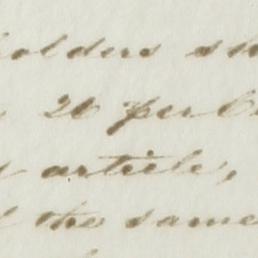 holders sh
20 per C
article,
the same